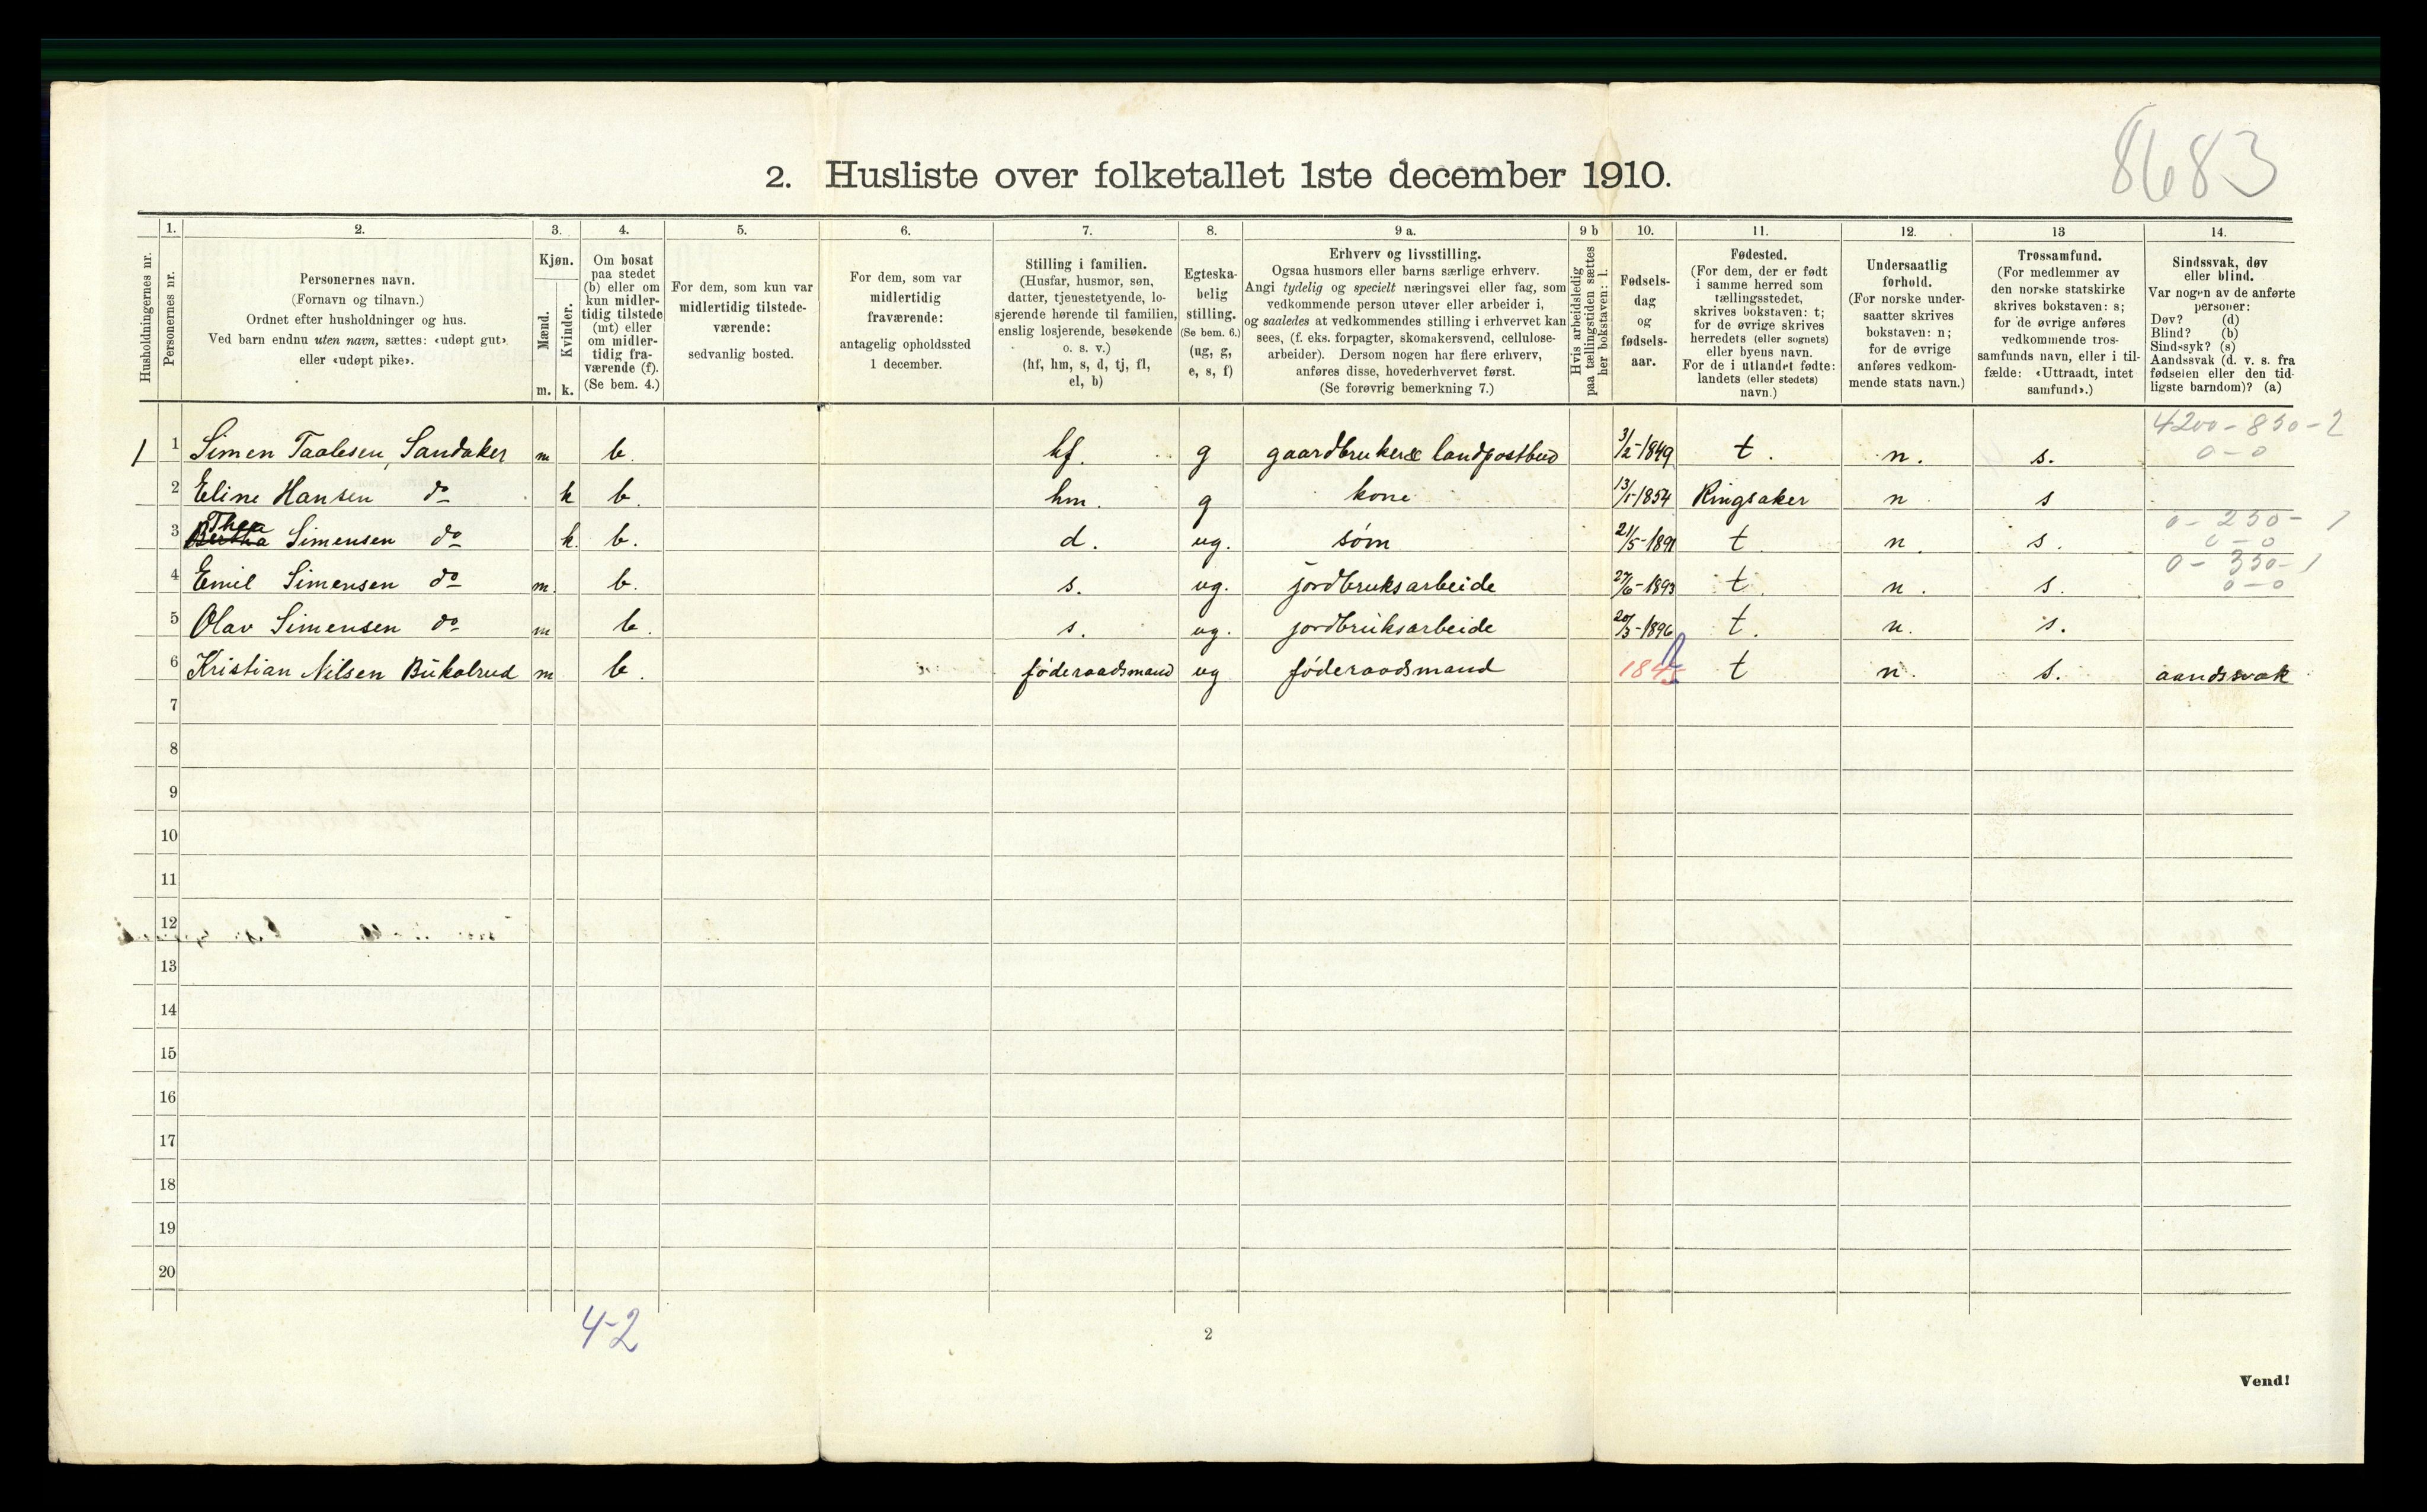 8683
2. Husliste over folketallet 1ste december 1910.
1. 2. 3. 4. 5. 6. 7. 8. 9 a. 9 b 10. 11. 12. 13 14.
Husholdningernes nr.
Personernes nr.
Personernes navn.
(Fornavn og tilnavn.)
Ordnet efter husholdninger og hus.
Ved barn endnu uten navn, sættes: «udøpt gut»
eller «udøpt pike».
Kjøn.
Mænd.
Kvinder.
m. k.
Om bosat
paa stedet
(b) eller om
kun midler-
tidig tilstede
(mt) eller
om midler-
tidig fra-
værende (f).
(Se bem. 4.)
For dem, som kun var
midlertidig tilstede-
værende:
sedvanlig bosted.
For dem, som var
midlertidig
fraværende:
antagelig opholdssted
1 december.
Stilling i familien.
(Husfar, husmor, søn,
datter, tjenestetyende, lo-
sjerende hørende til familien,
enslig losjerende, besøkende
o. s. v.)
(hf, hm, s, d, tj, fl,
el, b)
Egteska-
belig
stilling.
(Se bem. 6.)
(ug, g,
e, s, f)
Erhverv og livsstilling.
Ogsaa husmors eller barns særlige erhverv.
Angi tydelig og specielt næringsvei eller fag, som
vedkommende person utøver eller arbeider i,
og saaledes at vedkommendes stilling i erhvervet kan
sees, (f. eks. forpagter, skomakersvend, cellulose-
arbeider). Dersom nogen har flere erhverv,
anføres disse, hovederhvervet først.
(Se forøvrig bemerkning 7.)
Hvis arbeidsledig
paa tællingstiden sættes
her bokstaven: l.
Fødsels-
dag
og
fødsels-
aar.
Fødested.
(For dem, der er født
i samme herred som
tællingsstedet,
skrives bokstaven: t;
for de øvrige skrives
herredets (eller sognets)
eller byens navn.
For de i utlandet fødte:
landets (eller stedets)
navn.)
Undersaatlig
forhold.
(For norske under-
saatter skrives
bokstaven: n;
for de øvrige
anføres vedkom-
mende stats navn.)
Trossamfund.
(For medlemmer av
den norske statskirke
skrives bokstaven: s;
for de øvrige anføres
vedkommende tros-
samfunds navn, eller i til-
fælde: «Uttraadt, intet
samfund».)
Sindssvak, døv
eller blind.
Var nogen av de anførte
personer:
Døv? (d)
Blind? (b)
Sindssyk? (s)
Aandssvak (d. v. s. fra
fødselen eller den tid-
ligste barndom)? (a)
4200 - 850 - 2
1 1 Simen Taalesen, Sandaker m b. hf. g gaardbruker & landpostbud 3/2-1849 t. n. s. 0 - 0
2 Eline Hansen do k b. hm. g kone 13/1-1854 Ringsaker n s
Thea 0 - 250 - 1
3 Bertha Simensen do k. b. d. ug. söm 21/5-1891 t n. s. 0 - 0
0 - 350 - 1
4 Emil Simensen do m. b. s. ug. jordbruksarbeide 27/6-1893 t. n. s. 0 - 0
5 Olav Simensen do m b. s. ug. jordbruksarbeide 20/3-1896 t. n. s.
6 Kristian Nilsen Bukalrud m b. föderaadsmand ug föderaadsmand 1845 t n. s. aandssvak
7
8
9
10
11
12
13
14
15
16
17
18
19
20
4-2
2
Vend!